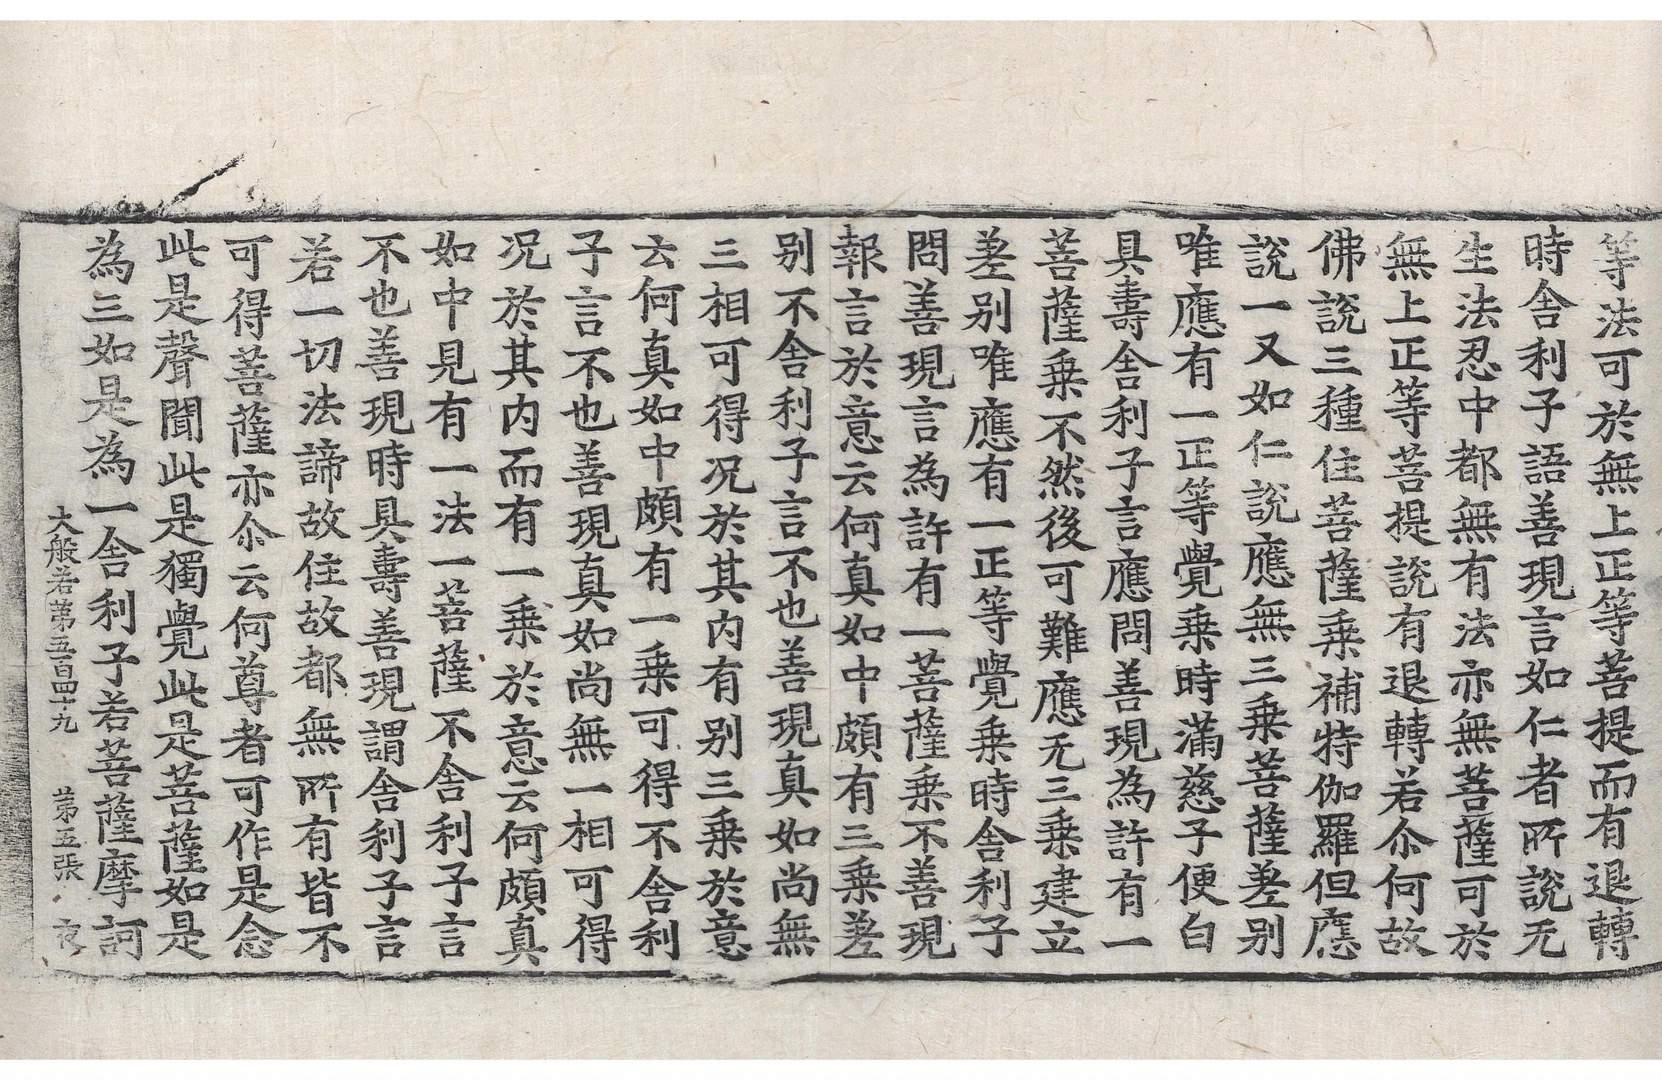 等法可於無上正等菩提而有退轉
時舍利子語善現言如仁者所說无
生法忍中都無有法亦無菩薩可於
無上正等菩提說有退轉若尒何故
佛說三種住菩薩乗補特伽羅但應
說一又如仁說應無三乗菩薩差别
唯應有一正等覺乗時滿慈子便白
具壽舍利子言應問善現為許有一
菩薩乗不然後可難應无三乗建立
差别唯應有一正等覺乗時舍利子
問善現言為許有一菩薩乗不善現
報言於意云何真如中頗有三乗差
别不舍利子言不也善現真如尚無
三相可得况於其内有别三乗於意
云何真如中頗有一乗可得不舍利
子言不也善現真如尚無一相可得
况於其内而有一乗於意云何頗真
如中見有一法一菩薩不舍利子言
不也善現時具壽善現謂舍利子言
若一切法諦故住故都無所有皆不
可得菩薩亦尒云何尊者可作是念
此是聲聞此是獨覺此是菩薩如是
為三如是為一舍利子若菩薩摩訶
大般若第五百四十九 第五張 夜